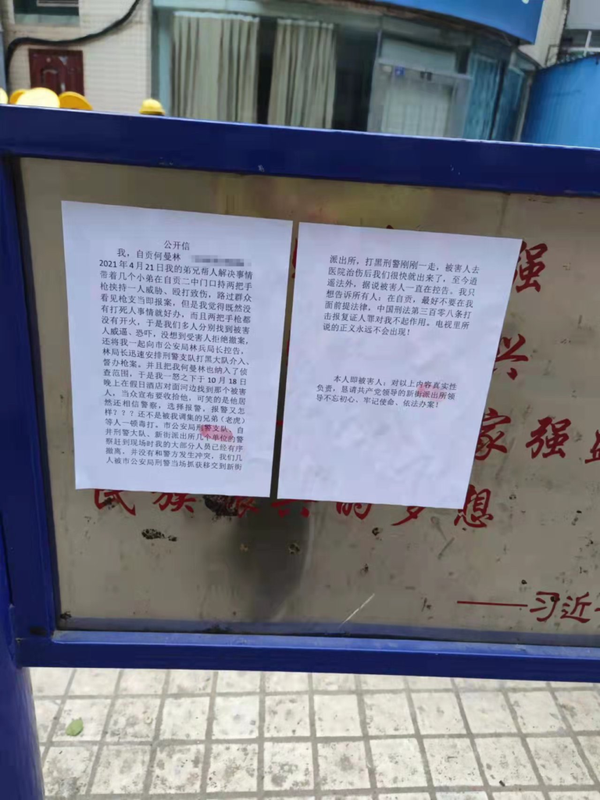 公开信
我，自贡何曼林
2021年4月21日我的弟兄帮人解决事情
带着几个小弟在自贡二中门口持两把手
枪挟持一人威胁、殴打致伤，路过群众
看见枪支当即报案，但是我觉得既然没
有打死人事情就好办，而且两把手枪都
没有开火，于是我们多人分别找到被害
人威逼、恐吓，没想到受害人拒绝撤案，
还将我一起向市公安局林兵局长控告，
林局长迅速安排刑警支队打黑大队介入、
督办枪案，并且把我何曼林也纳入了侦
查范围，于是我一怒之下于10月18日
晚上在假日酒店对面河边找到那个被害
人，当众宣布要收拾他，可笑的是他居
然还相信警察，选择报警、报警又怎
样？？？还不是被我调集的兄弟（老虎）
等人一顿毒打。市公安局刑警支队、自
井刑警大队、新街派出所几个单位的警
察赶到现场时我的大部分人员已经有序
撤离，并没有和警方发生冲突，我们几
人被市公安局刑警当场抓获移交到新街
派出所，打黑刑警刚刚一走，被害人去
医院治伤后我们很快就出来了，至今逍
遥法外，据说被害人一直在控告，我只
想告诉所有人，在自贡，最好不要在我
面前提法律，中国刑法第三百零八条打
击报复证人罪对我不起作用。电视里所
说的正义永远不会出现！
本人即被害人，对以上内容真实性
负责，恳请共产党领导的新街派出所领
导不忘初心、牢记使命、依法办案！
强
兴
家强盛
民族振兴的梦想
——习近